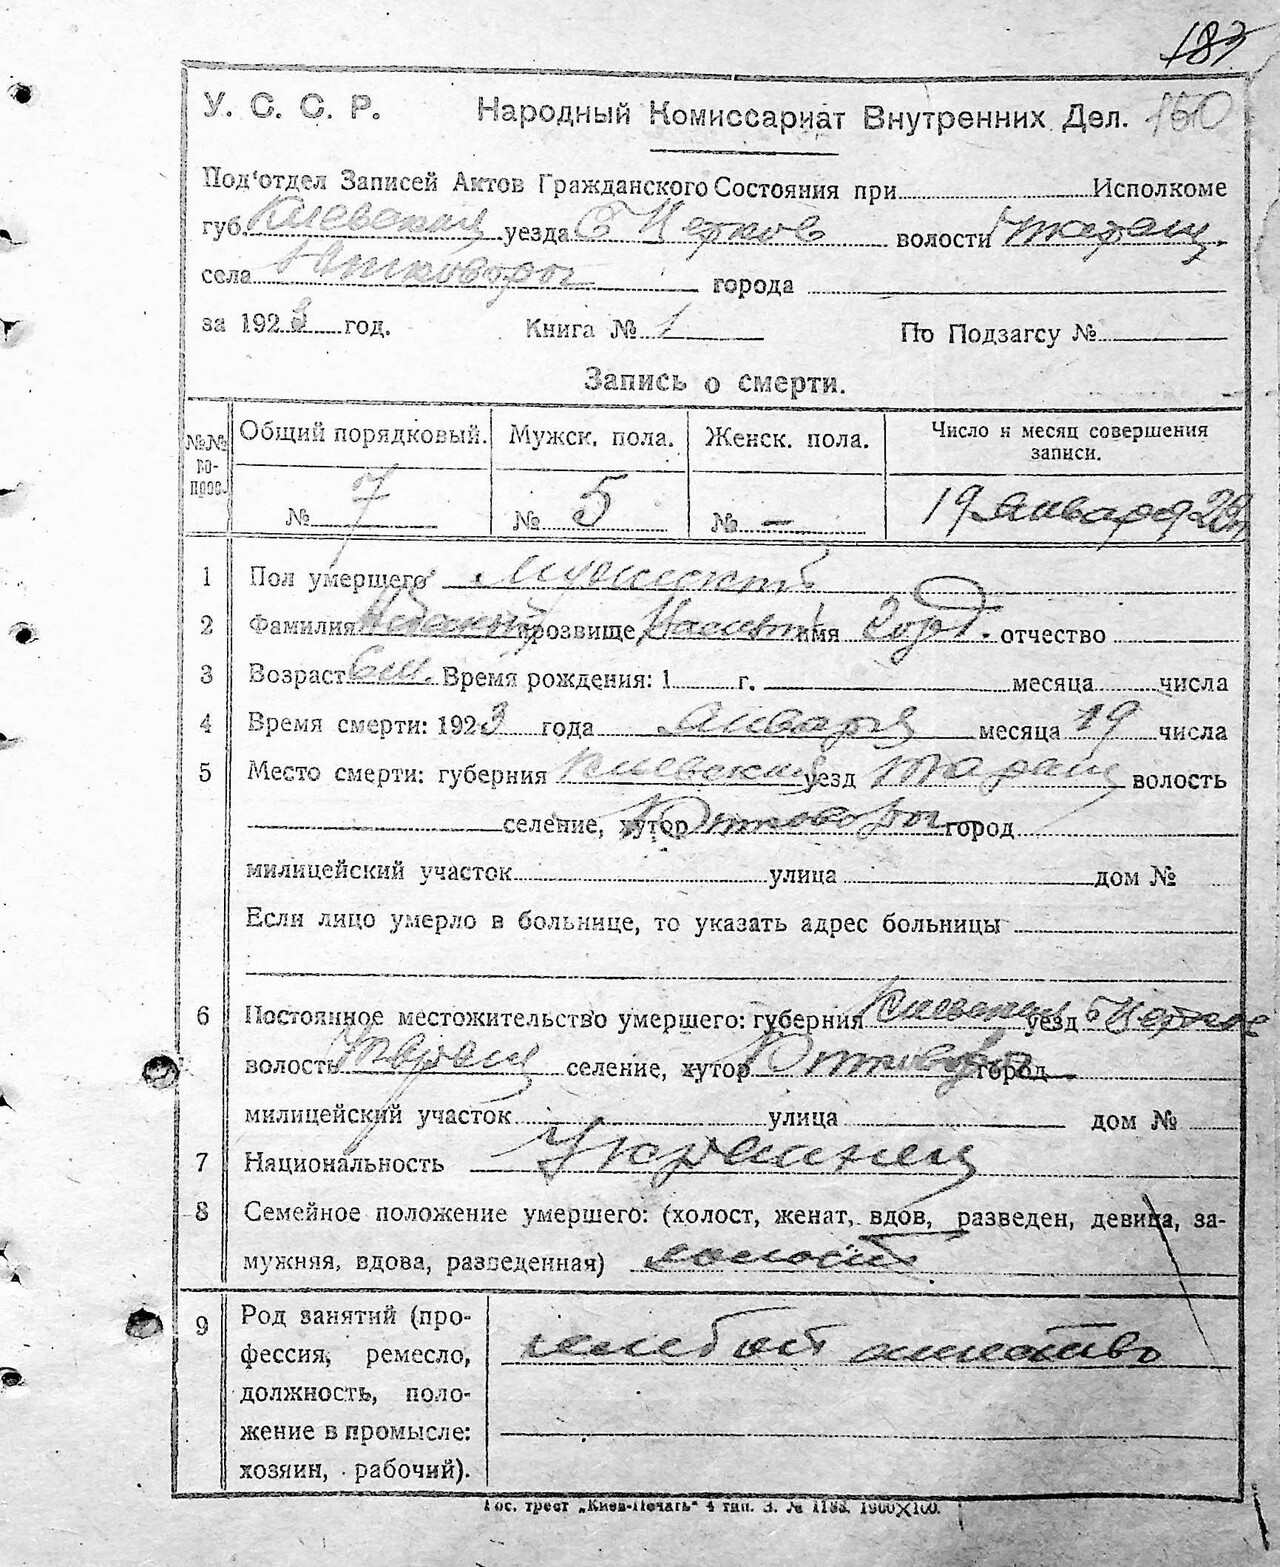 183
У. С. С. Р. Народный Комиссариат Внутренних Дел. 150
Под'отдел Записей Актов Гражданского Состояния при Исполкоме
губ. Киевская уезда Б Церков волости Таращ.
села Юшковорог города
за 1923 год. Книга № 1 По Подзагсу №
Запись о смерти.
№№ по-прос. Общий порядковый. Мужск. пола. Женск. пола. Число и месяц совершения записи.
№ 7 № 5 № – 19 января 23
1 Пол умершего мужской
2 Фамилия прозвище имя отчество
3 Возраст Время рождения: 1 г. месяца числа
4 Время смерти: 1923 года января месяца 19 числа
5 Место смерти: губерния Киевская уезд Таращ волость
селение, хутор Юшковорог город
милицейский участок улица дом №
Если лицо умерло в больнице, то указать адрес больницы
6 Постоянное местожительство умершего: губерния Киевская уезд Б Церков
волость Таращ селение, хутор Юшковорог город
милицейский участок улица дом №
7 Национальность Украинец
8 Семейное положение умершего: (холост, женат, вдов, разведен, девица, за-
мужняя, вдова, разведенная) холост
9 Род занятий (про-
фессия, ремесло, хлебопашество
должность, поло-
жение в промысле:
хозяин, рабочий).
Гос. трест „Киев-Печать" 4 тип. З. № 1193. 1900X100.